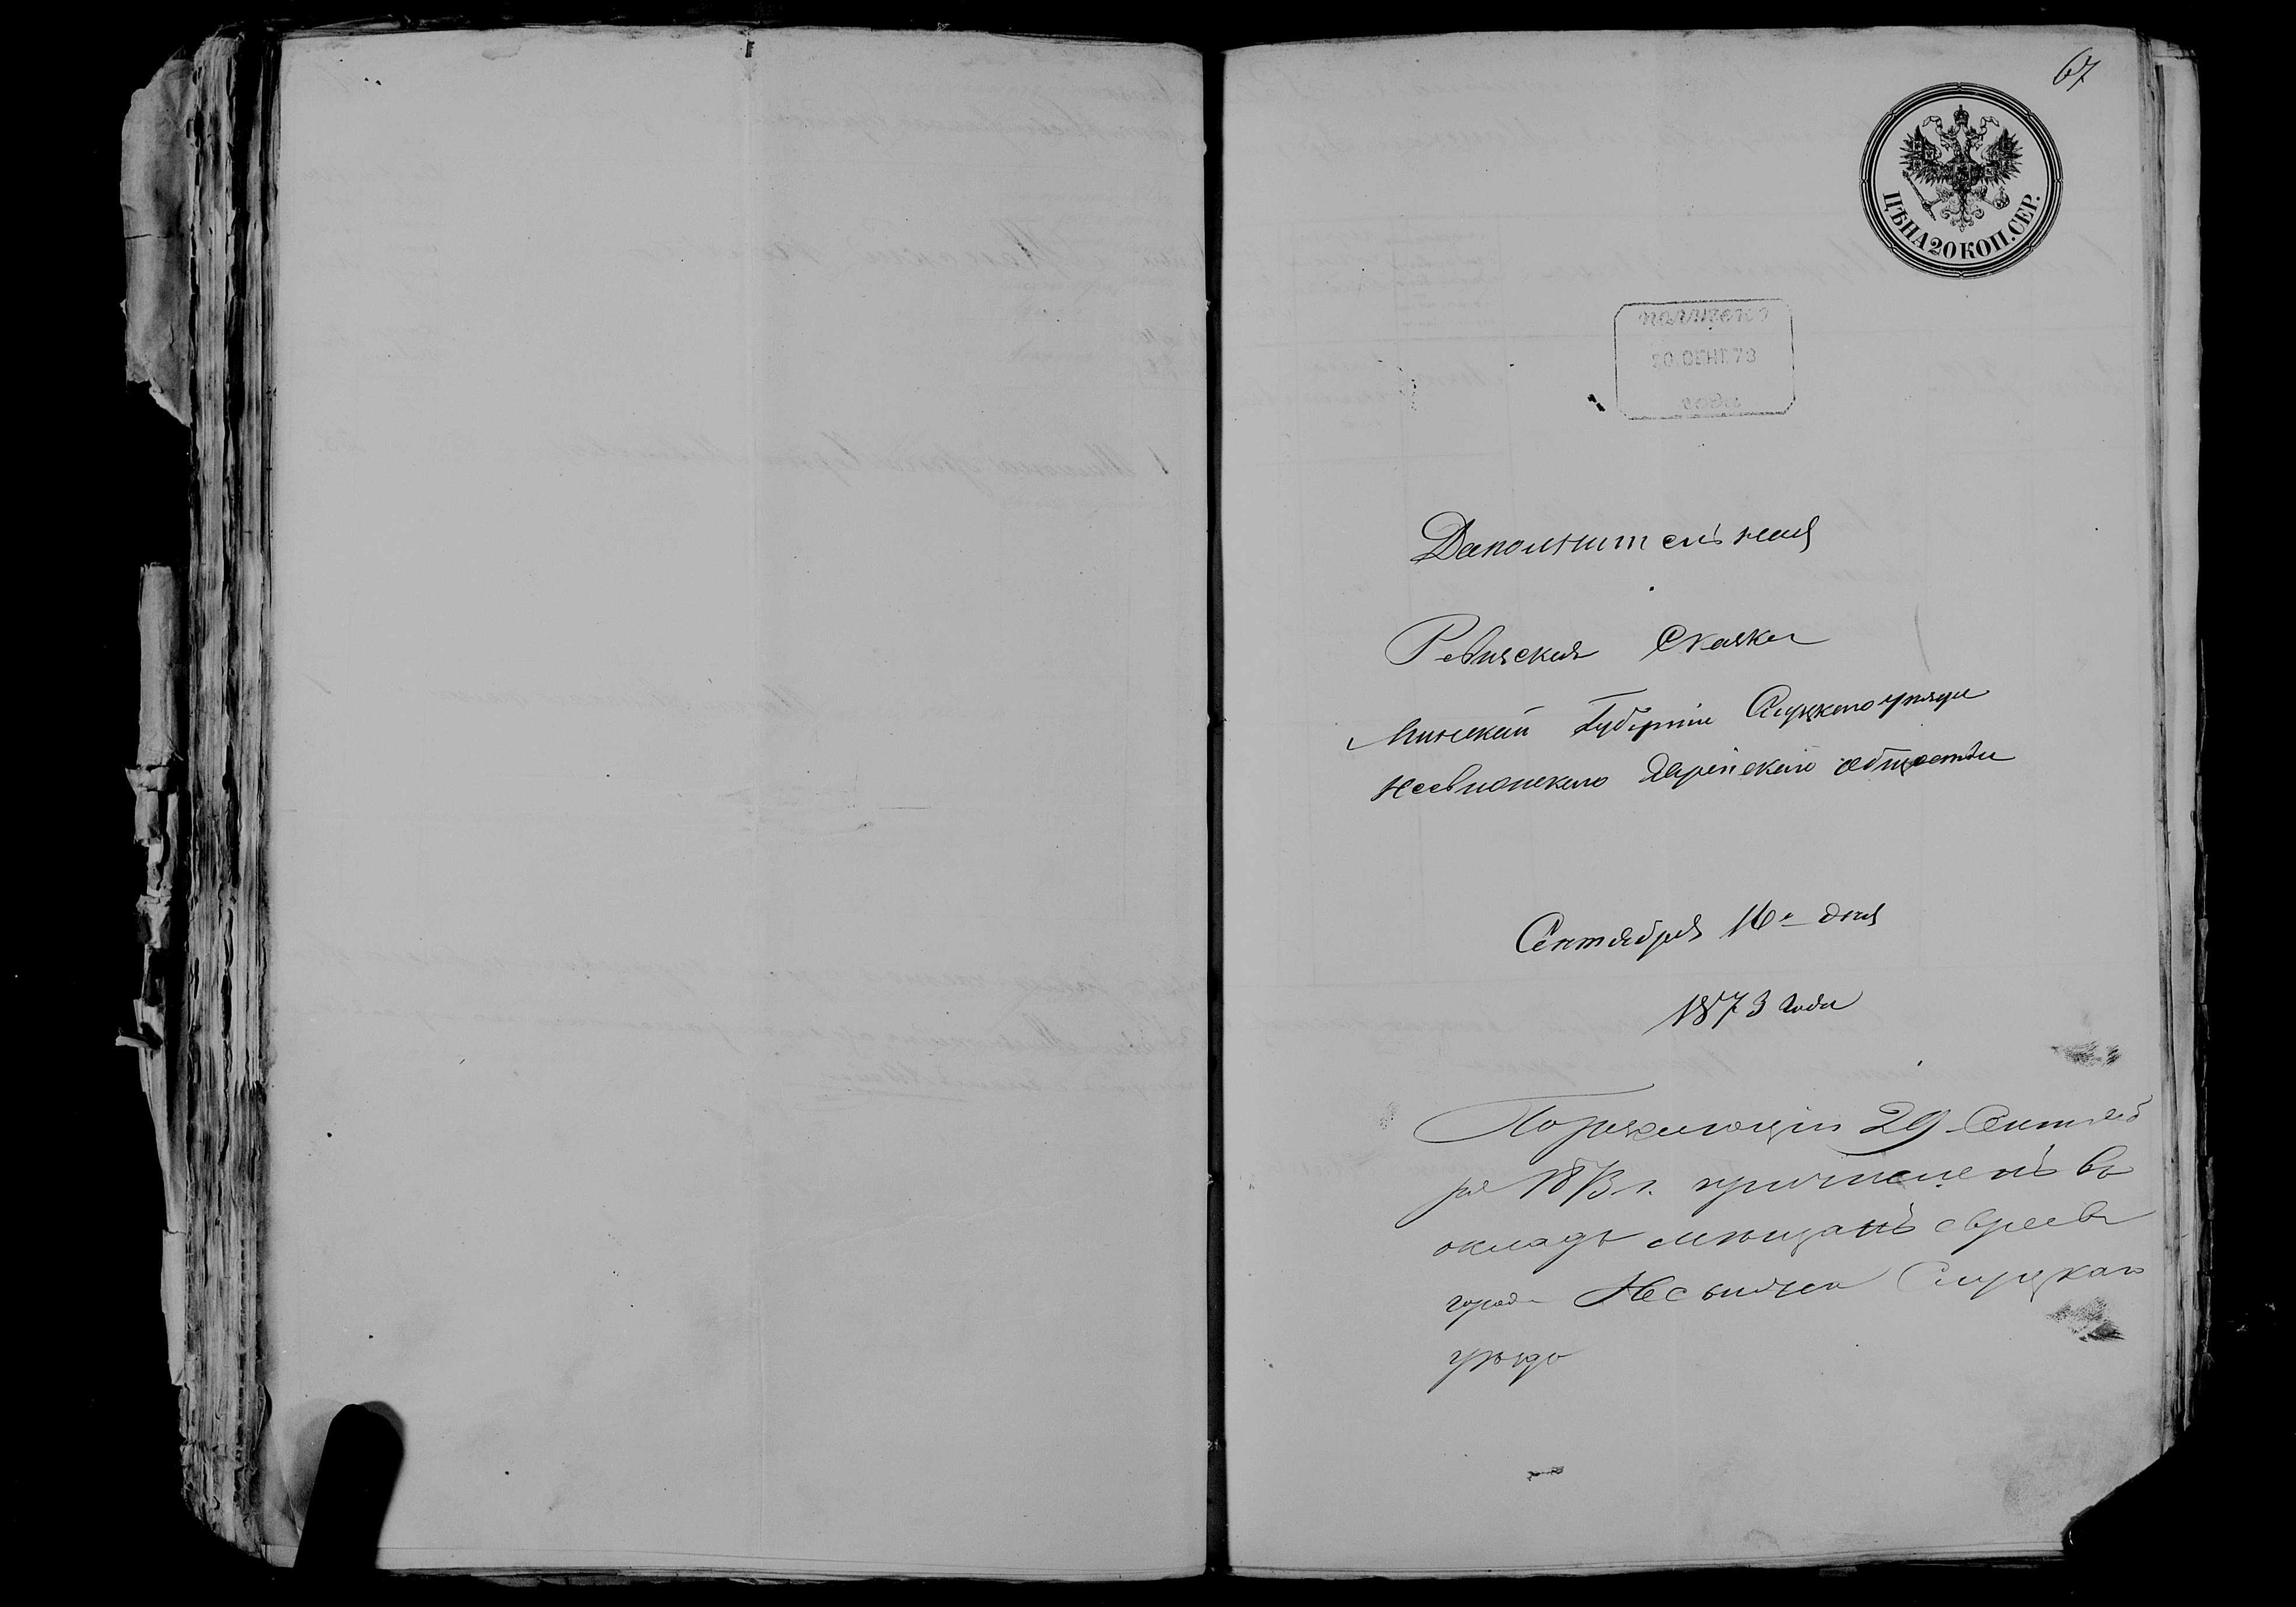 67
ЦѢНА 20 КОП. СЕР.
получено
20 СЕНТ. 73
года
Дополнительная
Ревизская Сказка
Минской Губерніи Слуцкого уѣзда
Несвижского Еврейского общества
Сентября 16го дня
1873 Года
29 Сентяб
ря 1873 г. причислен въ
окладъ мѣщанъ евреевъ
города Несвижа Слуцкаго
уѣзда